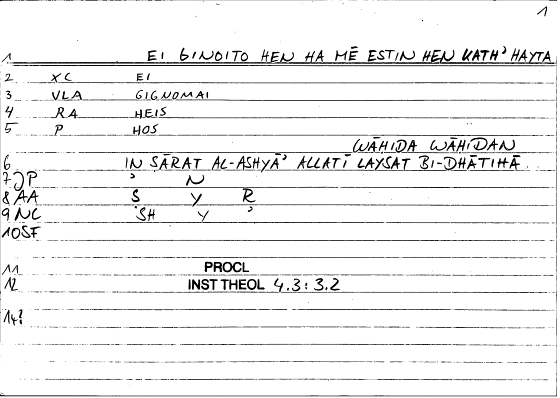 1
1 EI GINOITO HEN HA MĒ ESTIN HEN KATH' HAYTA
2 XC EI
3 VLA GIGNOMAI
4 RA HEIS
5 P HOS
WĀḤIDA WĀḤIDAN
6 IN ṢĀRAT AL-ASHYĀ' ALLATĪ LAYSAT BI-DHĀTIHĀ
7 JP ' N
8 AA Ṣ Y R
9 NC SH Y '
10 SF
11 PROCL
12 INST THEOL 4.3: 3.2
14?